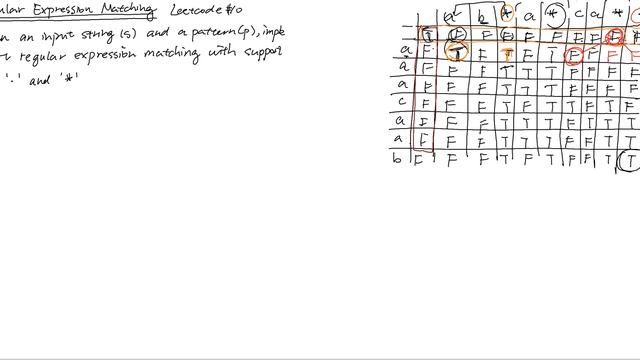 ular Expression Matching Leetcode #10
n an input string (s) and a pattern (p), imple
regular expression matching with support
'.' and '*'
a b * a * c a *
T F F F F F F F F F
a F T F T F T F F F F
a F F F T T T F F F F
a F F F T T T F F F F
c F F F T F T T F F F
a F F F T T T F T T T
a F F F T T T F F T T
b F F F T F T F F T T